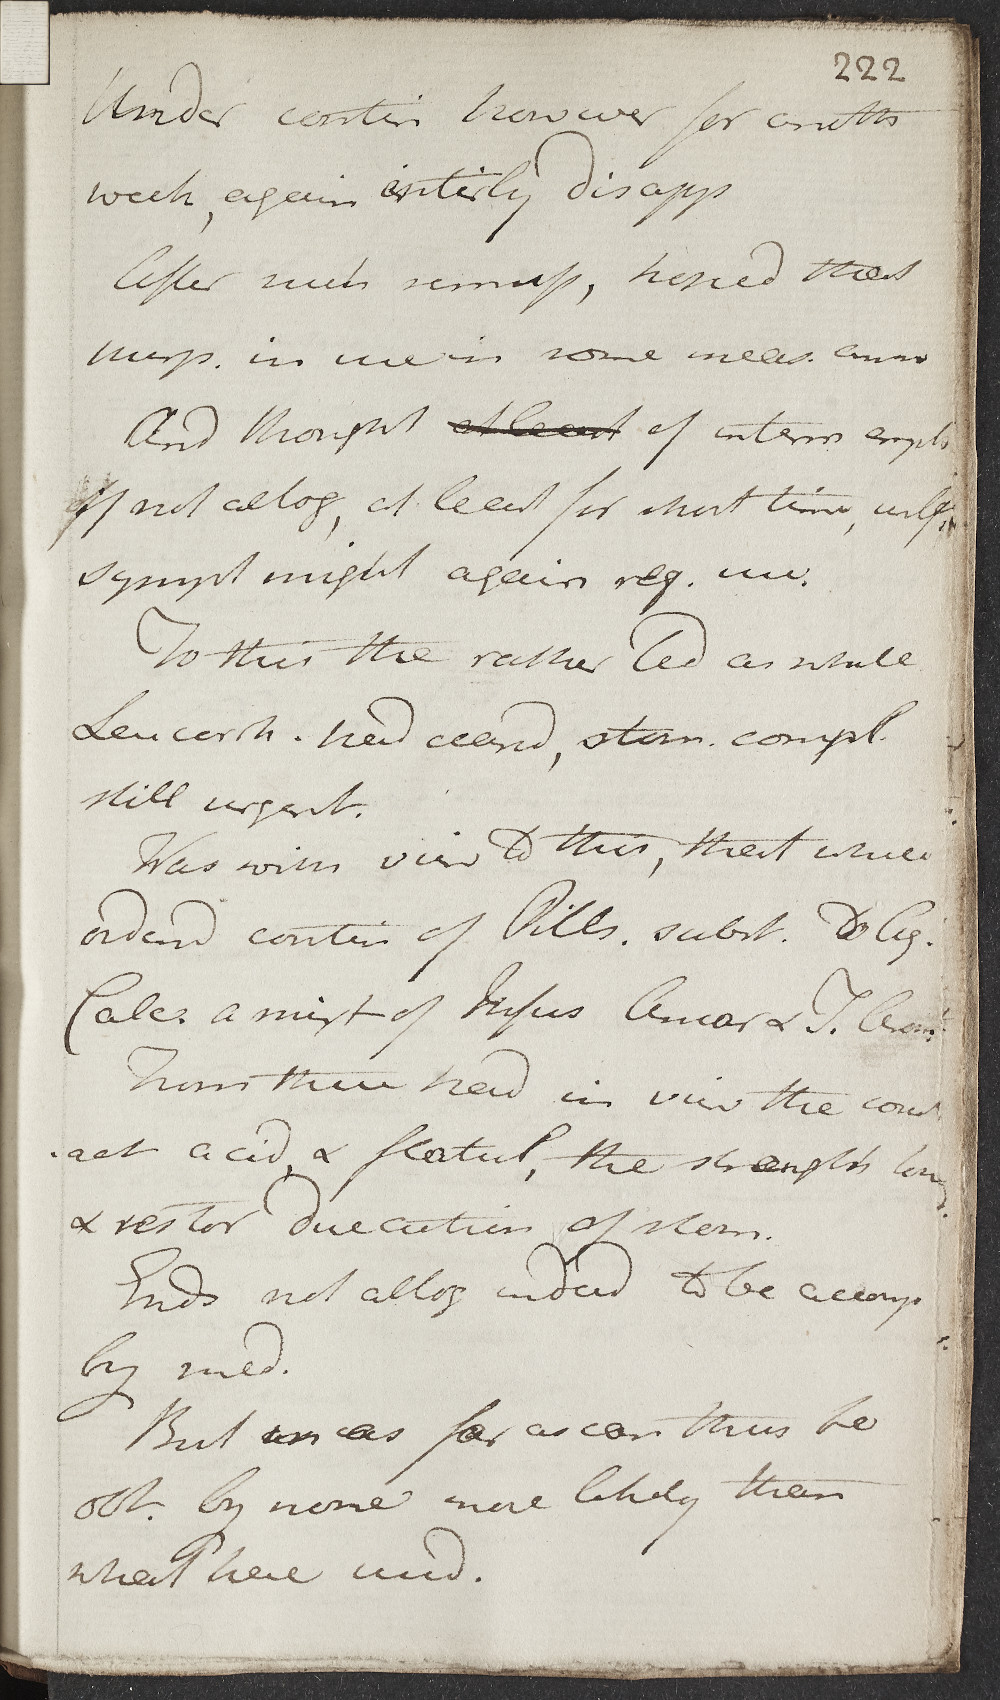 222
Under contin however for anoth
week, again intirly disapp
After such remiss, hoped that
in some meas.
And thought at least of interm empl
if not altog, at least for short time,
sympt might again req. use.
To this the rather led as while
Leucorrh. had ceasd, stom. compl.
still urgent.
Was with view to this, that while
orderd contin of Pills. subst. to Aq.
Calc. a mixt of Infus Amar & T.
From these had in view the
act acid, & flatul, the strength
& restor due action of stom.
Ends not altog indeed to be accomp
by med.
But in as far as can thus be
obt. by none more likely than
what here usd.